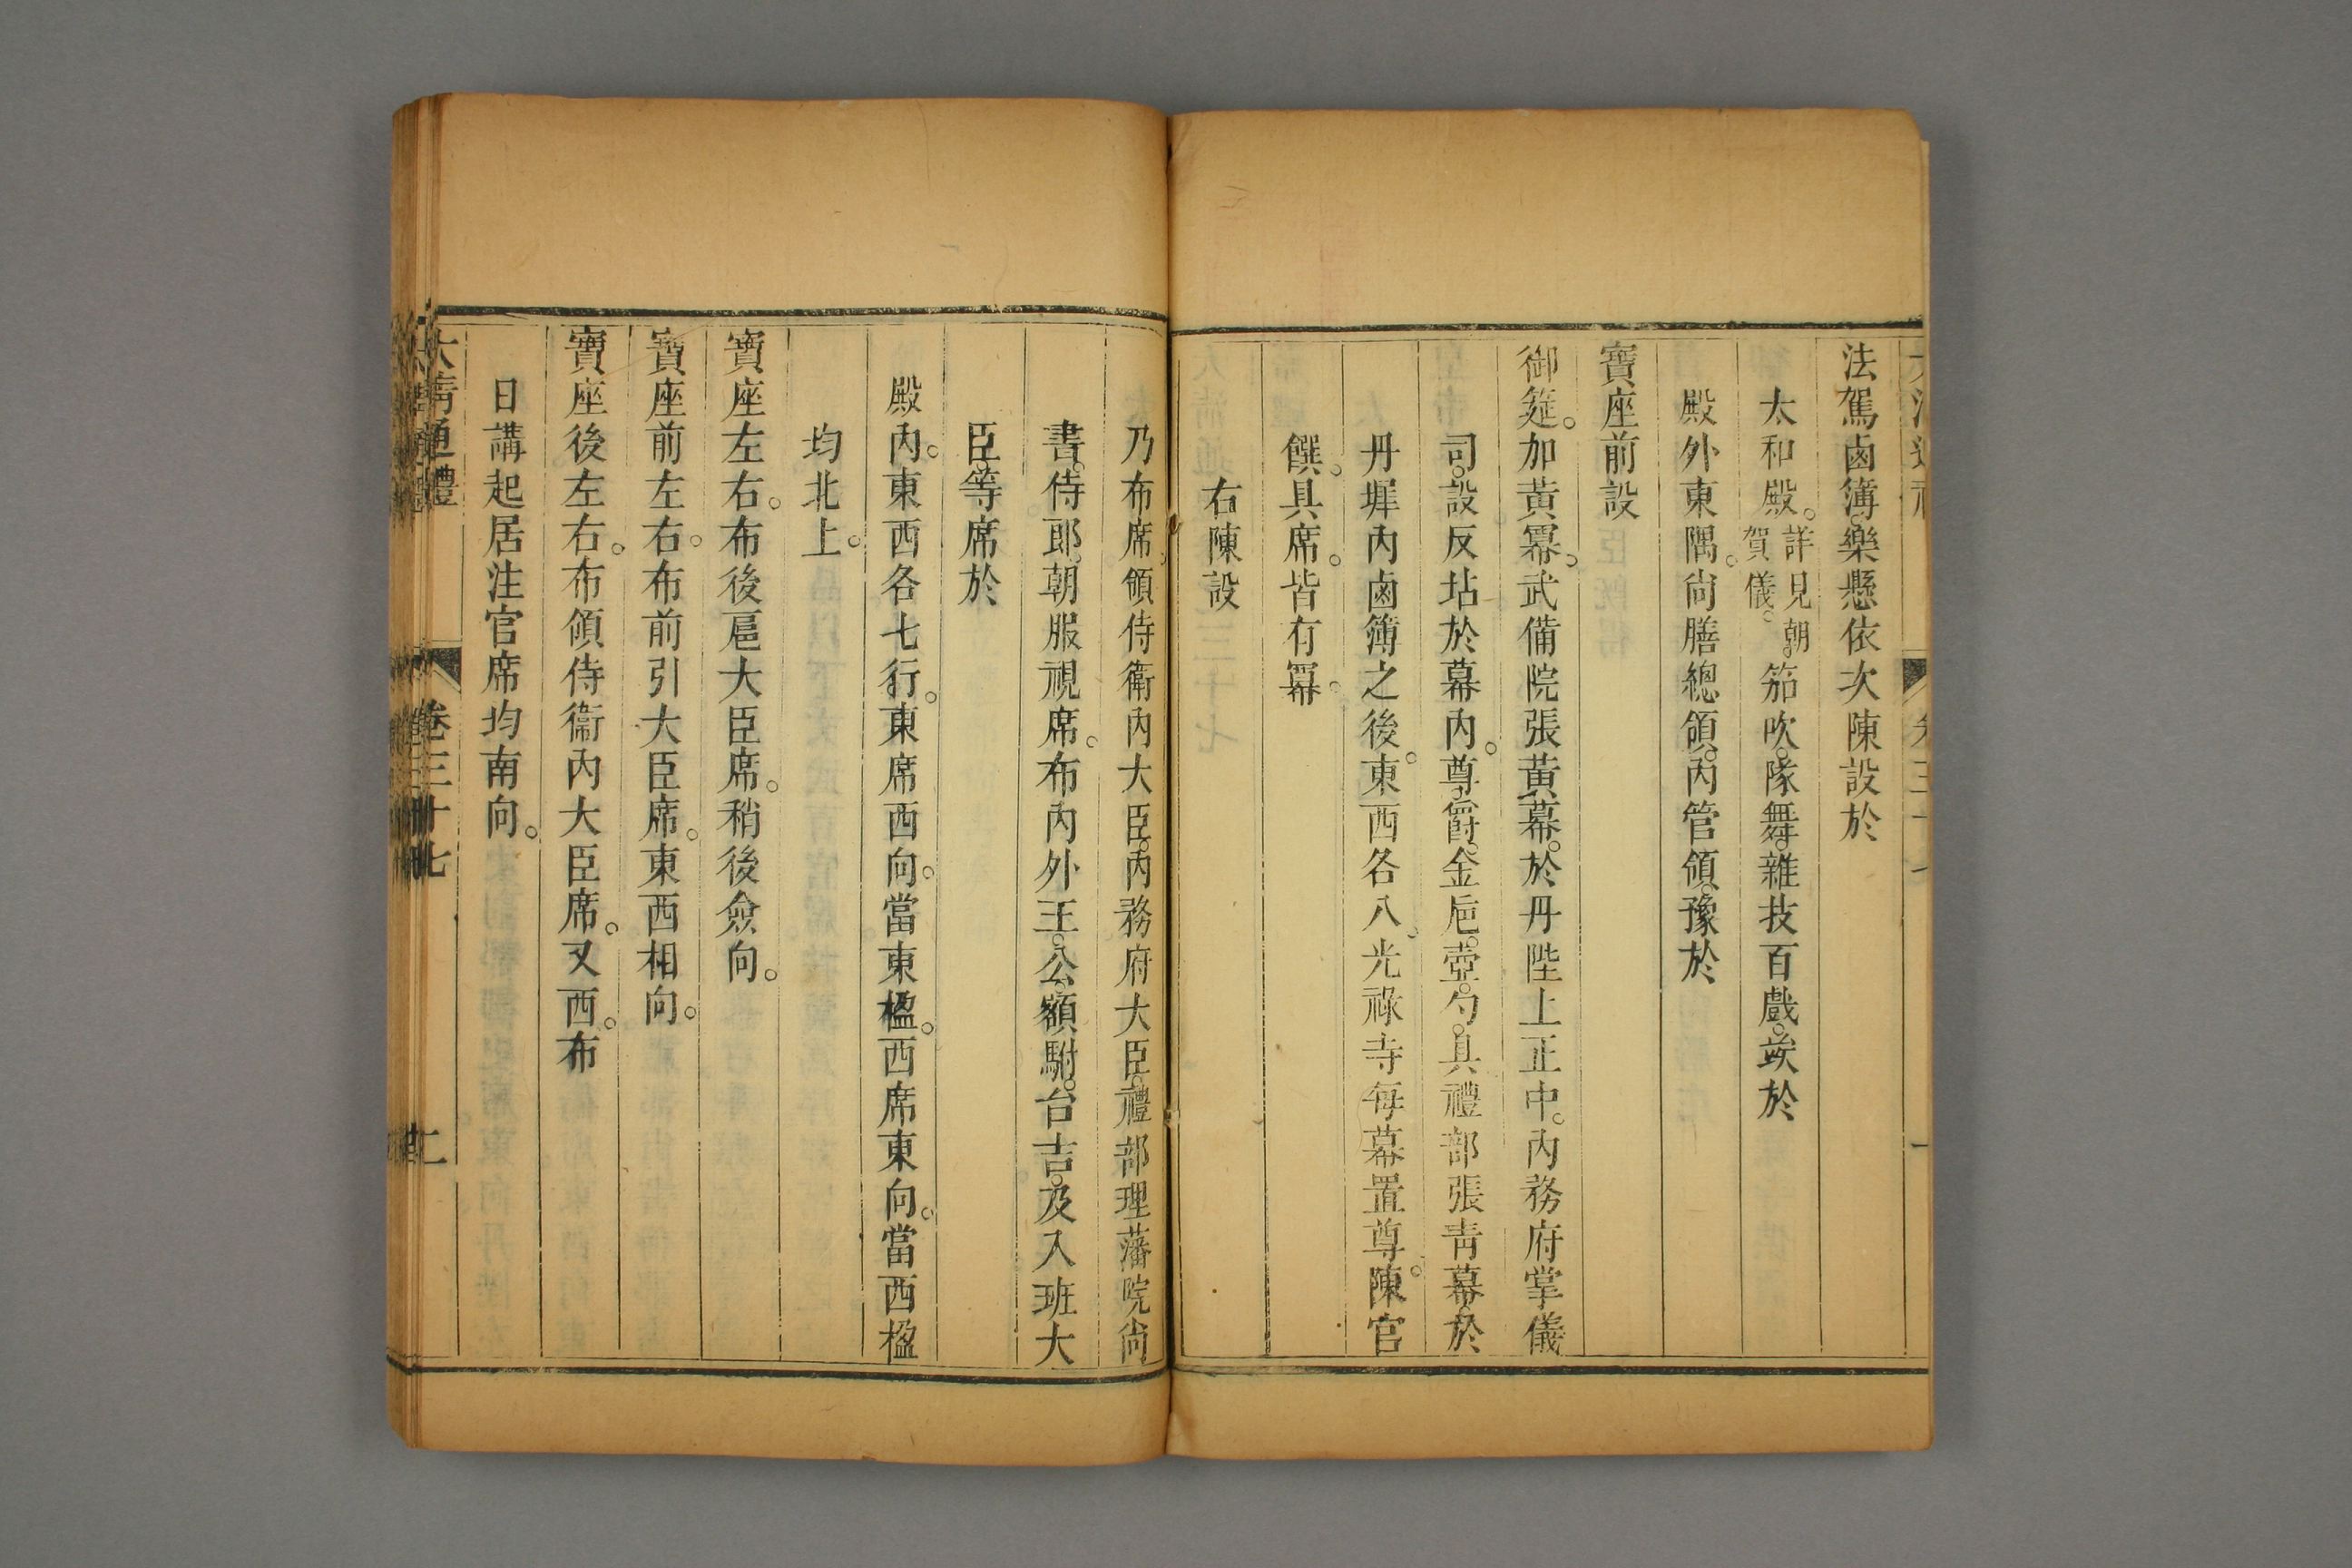 法駕鹵簿樂懸依次陳設於
太和殿。詳見朝賀儀。笳吹。隊舞。雜技百戲。竢於
殿外東隅。尙膳總領。內管領。豫於
寶座前設
御筵。加黃羃。武備院張黃幕。於丹陛上正中。內務府掌儀
司。設反坫於幕內。尊。爵。金巵。壺。勺。具禮部張靑幕。於
丹墀內鹵簿之後。東西各八。光祿寺每幕置尊。陳官
饌。具席。皆有羃。
右陳設
乃布席。領侍衞內大臣。內務府大臣。禮部理藩院尙
書。侍郎。朝服視席。布內外王。公。額駙。台吉。及入班大
臣。等席於
殿內。東西各七行。東席西向。當東楹。西席東向。當西楹
均北上。
寶座左右。布後扈大臣席。稍後僉向。
寶座前左右。布前引大臣席。東西相向。
寶座後左右。布領侍衞內大臣席。又西。布
日講起居注官席均南向。
大淸通禮 卷三十七 二